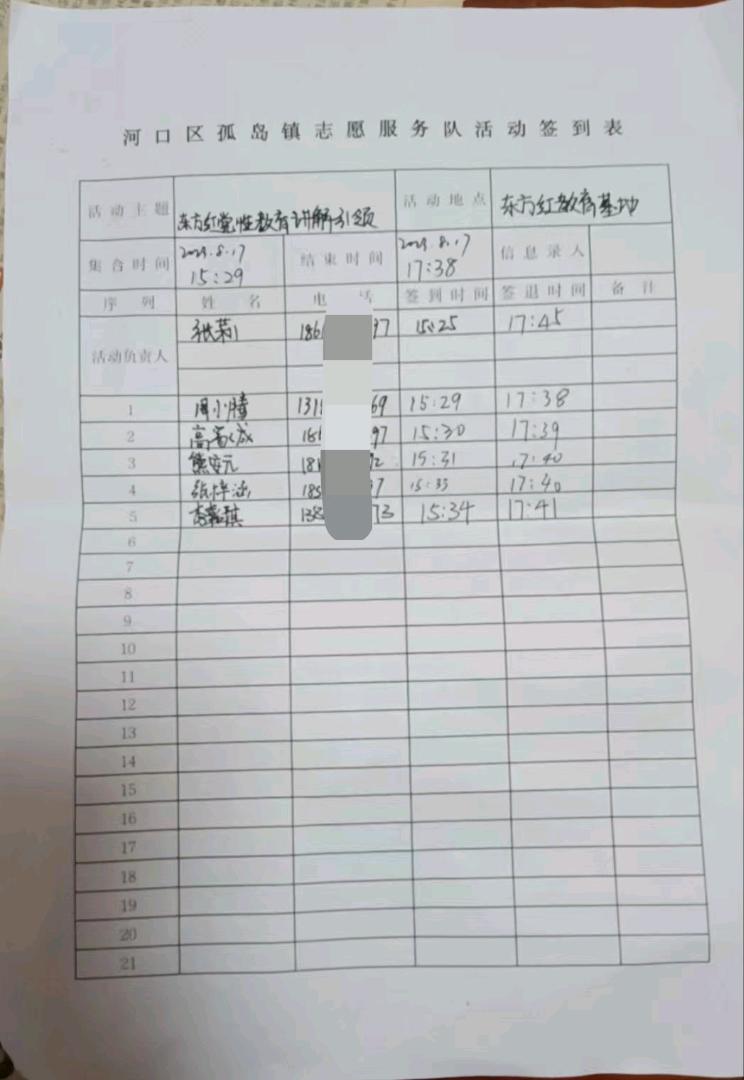 河口区孤岛镇志愿服务队活动签到表
活动主题 东方红党性教育讲解引领 活动地点 东方红教育基地
集合时间 15:29 结束时间 17:38 信息录入
序列 姓名 电话 签到时间 签退时间 备注
活动负责人 张 186 97 15:25 17:45
1 周小 131 69 15:29 17:38
2 高 97 15:30 17:39
3 熊安元 15:31 17:40
4 张梓涵 185 7 15:33 17:40
5 138 73 15:34 17:41
6
7
8
9
10
11
12
13
14
15
16
17
18
19
20
21